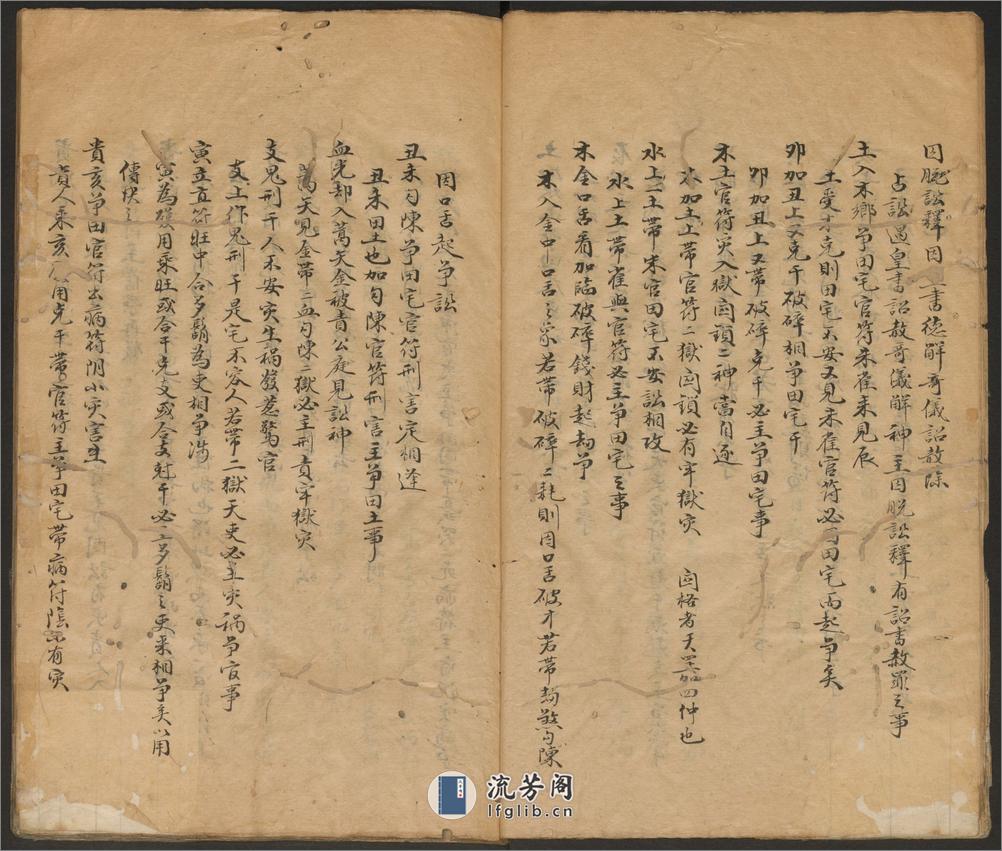 因脫訟釋囚皇書德解奇儀詔赦除
占訟遇皇書詔赦奇儀解神主囚脫訟釋有詔書赦罪之事
土入木鄉爭田宅官符朱雀未見辰
土受才克則田宅不安又見朱雀官符必因田宅而起爭矣
卯加丑上又克干破碎相爭田宅干
卯加丑上又帶破碎克干必主爭田宅事
木土官符灾入獄關鎖二神當自逐
水加土上帶官符二獄關鎖必有牢獄灾 關格者天罡四仲也
水上一土帶朱官田宅不安訟相攻
水上土帶雀與官符必主爭田宅之事
木金口舌看加臨破碎錢財起劫爭
木入金中口舌之象若帶破碎二耗則因口舌破才若帶劫煞勾陳
因口舌起爭訟
丑未勾陳爭田宅官符刑害定相逢
丑未田土也加勾陳官符刑害主爭田土事
血光却入蒿矢金被責公庭見訟神
蒿矢見金帶二血勾陳二獄必主刑責牢獄灾
支鬼刑干人不安灾生禍發惹驚官
支上作鬼刑干是宅不容人若帶二獄天吏必主灾禍爭官事
寅立直符旺中合多鬚為吏相爭涉
寅為發用乘旺或合干克支或合支射干必主多鬚之吏來相爭矣以用
傳決之
貴亥爭田官符去病符陰小灾害生
貴人乘亥用克干帶官符主爭田宅帶病符陰小有灾
流芳阁
lfglib.cn